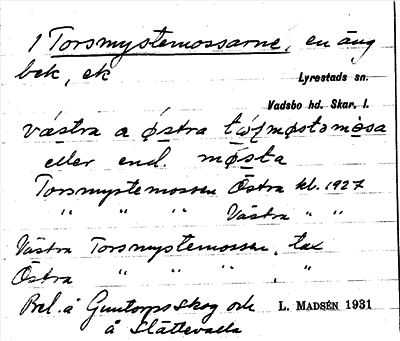 1 Torsmystemossarne, en äng
bek, ek
Lyrestads sn.
Vadsbo hd. Skar. l.
västra a östra
eller end. mösta
Torsmystemossen Östra kl. 1927
" " " Västra " "
Västra Torsmystemossen, tax
Östra " " " , "
Bel. å Guntorps Skog och
å Slättevalla
L. MADSÉN 1931